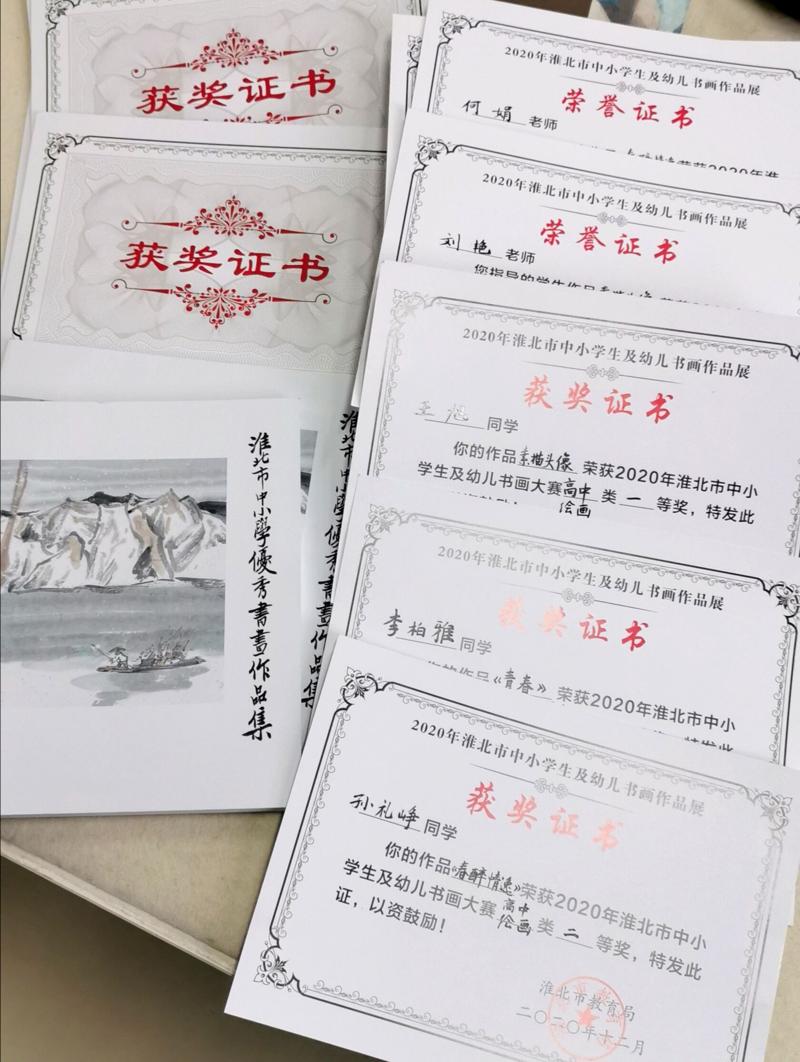 获奖证书
获奖证书
淮北市中小學優秀書畫作品集
淮北市中小學優秀書畫作品集
2020年淮北市中小学生及幼儿书画作品展
荣誉证书
何娟 老师
荣获2020年淮
2020年淮北市中小学生及幼儿书画作品展
荣誉证书
刘艳 老师
您指导的学生作品
2020年淮北市中小学生及幼儿书画作品展
获奖证书
王旭 同学
你的作品素描头像荣获2020年淮北市中小
学生及幼儿书画大赛高中绘画类一等奖，特发此
2020年淮北市中小学生及幼儿书画作品展
获奖证书
李柏雅 同学
你的作品《青春》荣获2020年淮北市中小
特发此
2020年淮北市中小学生及幼儿书画作品展
获奖证书
孙礼峥 同学
你的作品《春醉情逸》荣获2020年淮北市中小
学生及幼儿书画大赛高中绘画类二等奖，特发此
证，以资鼓励！
淮北市教育局
二〇二〇年十二月